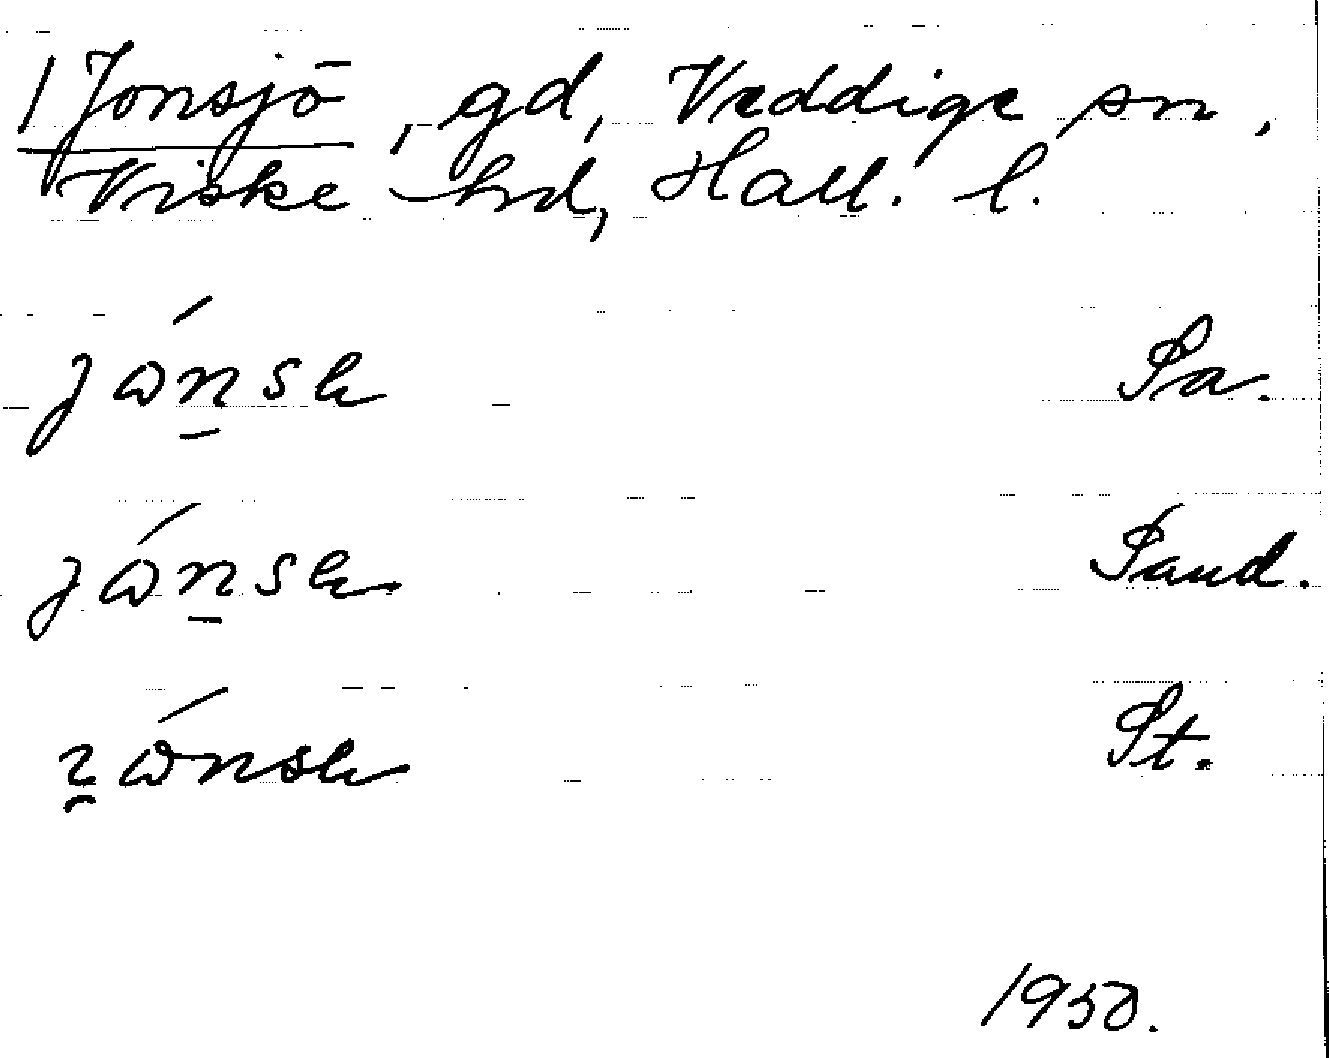 1 Jonsjö, gd, Veddige sn,
Viske hd, Hall. l.
Sa.
Sand.
St.
1950.